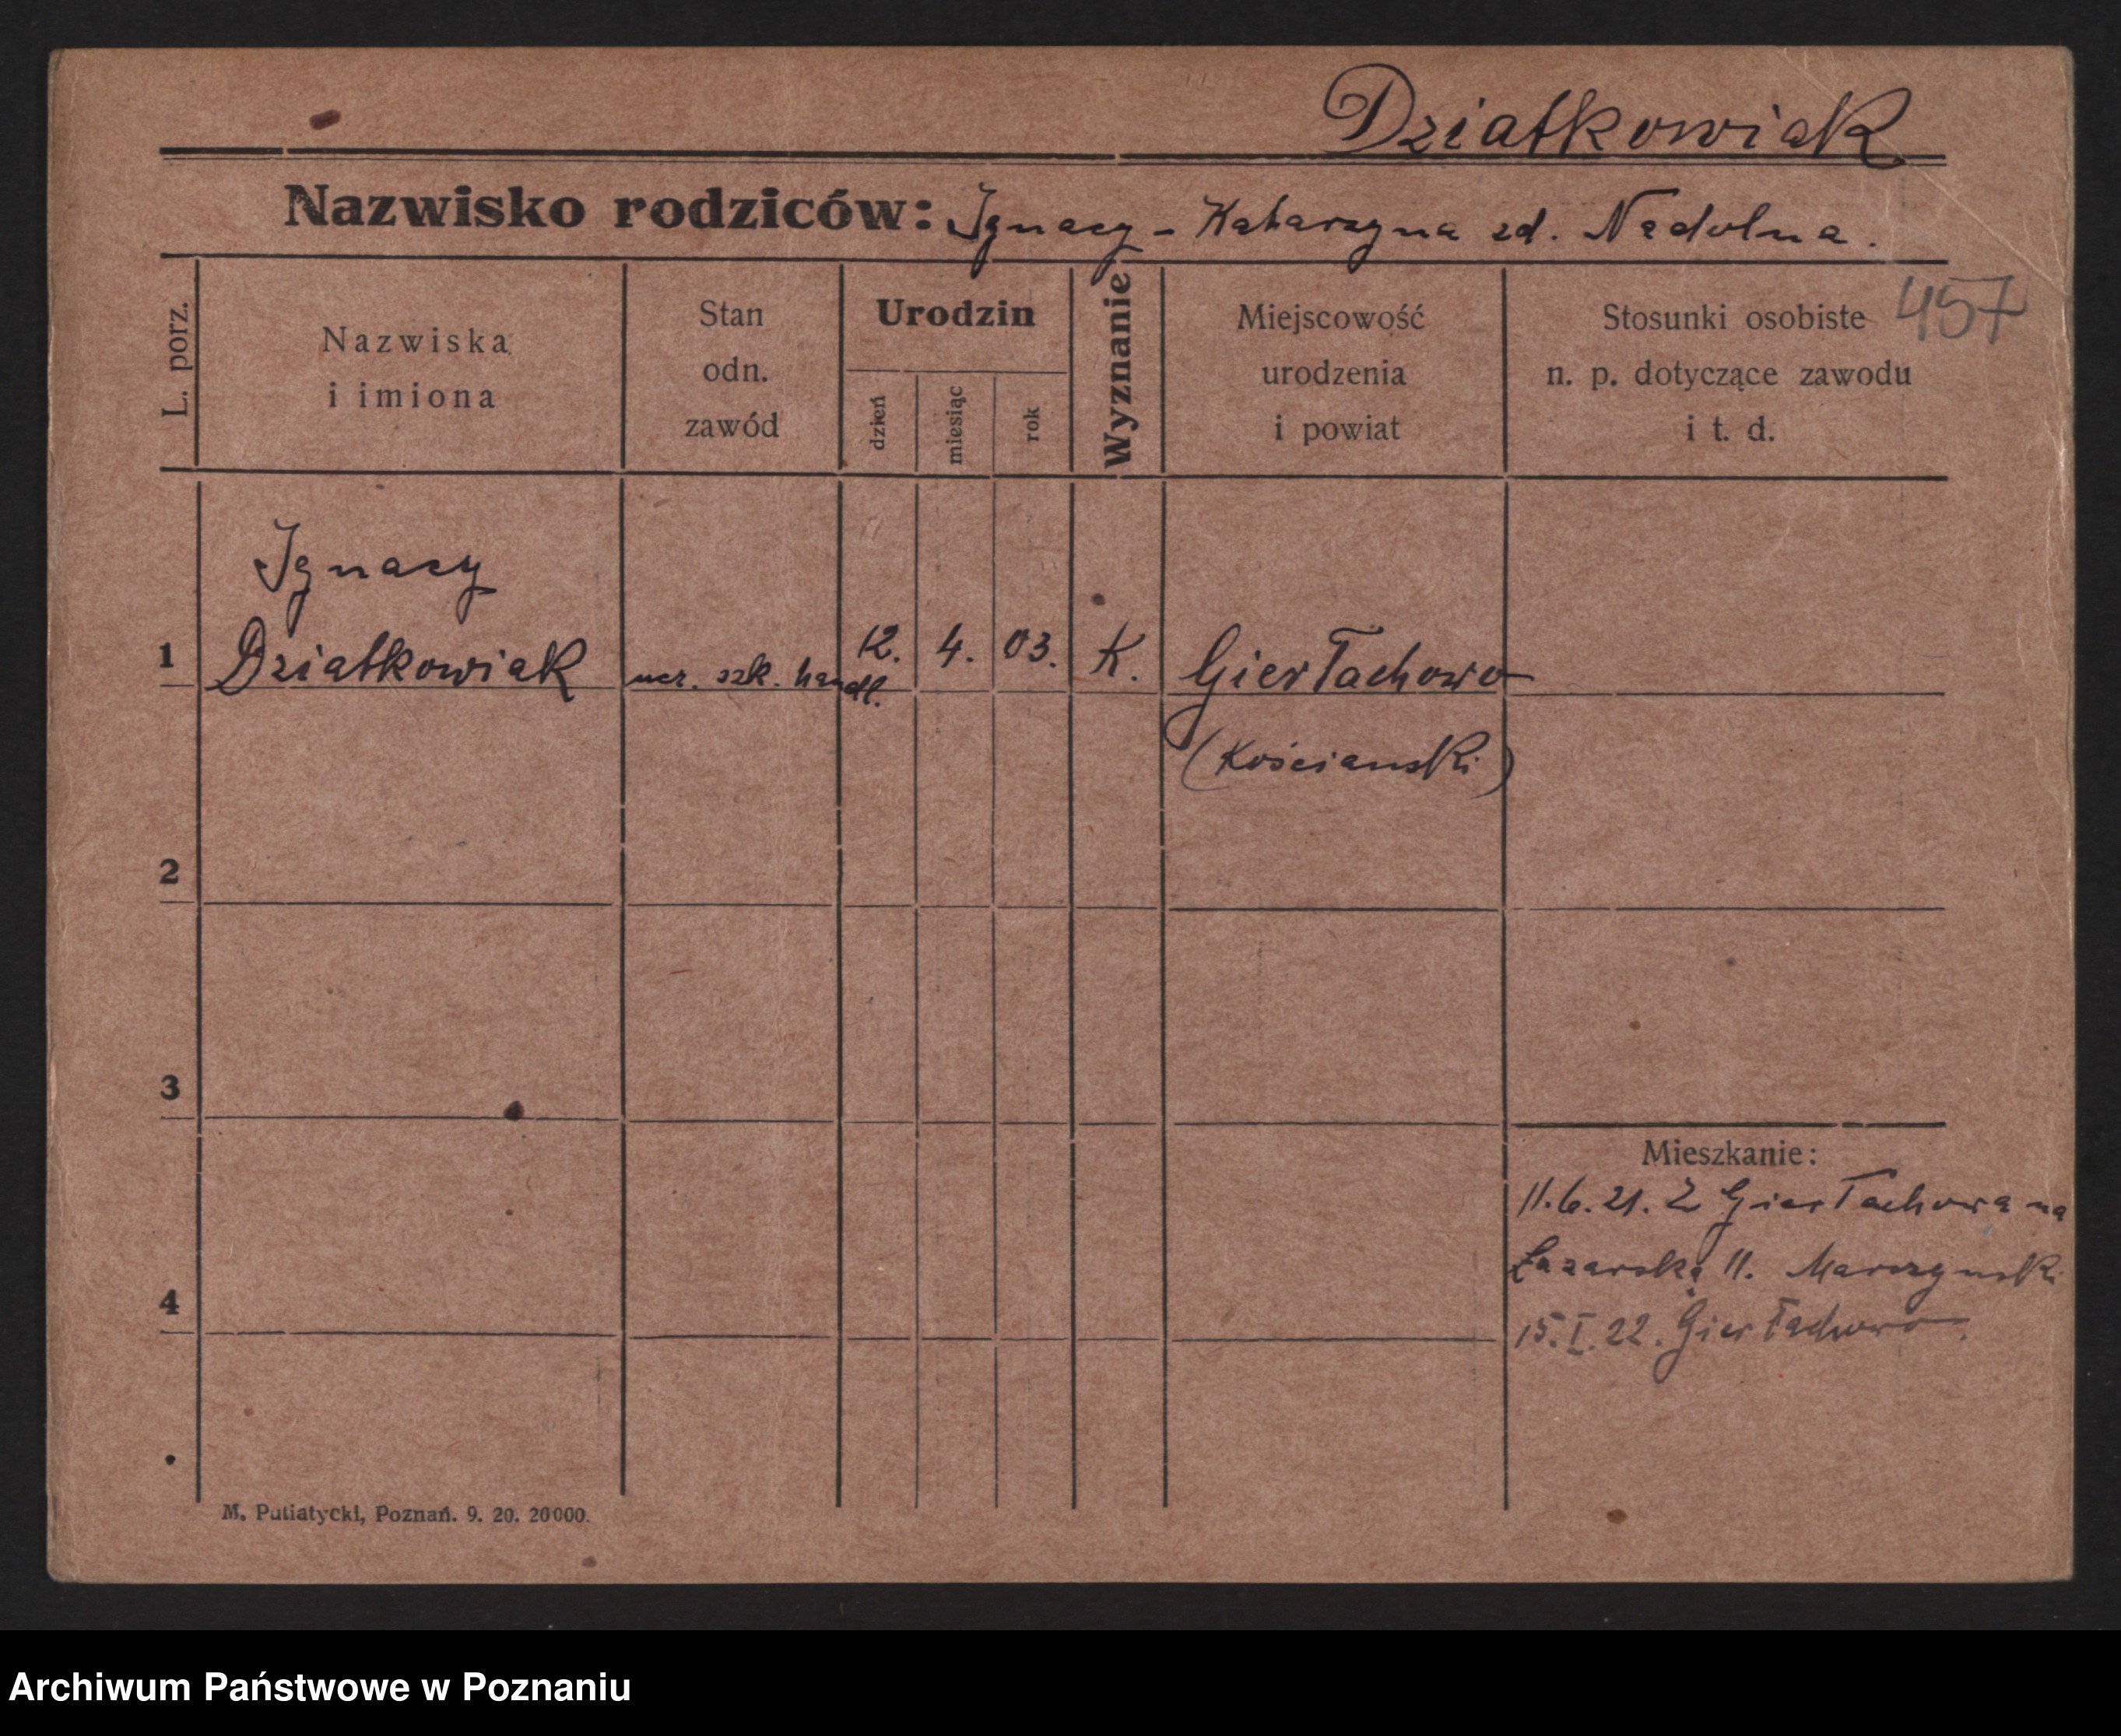 Dziatkowiak
Nazwisko rodziców: Ignacy - Katarzyna zd. Nadolna.
457
L. porz.
Nazwiska
i imiona
Stan
odn.
zawód
Urodzin
dzień
miesiąc
rok
Wyznanie
Miejscowość
urodzenia
i powiat
Stosunki osobiste
n. p. dotyczące zawodu
i t. d.
Ignacy
1 Dziatkowiak ucz. szk. handl. 12. 4. 03. K. Gierłachowo
(Kościański)
2
3
Mieszkanie:
11.6.21. Z Gierłachowa na
Łazarską 11. Marszyński
4 15.I.22. Gierłachowo.
M. Putiatycki, Poznań. 9. 20. 20000.
Archiwum Państwowe w Poznaniu